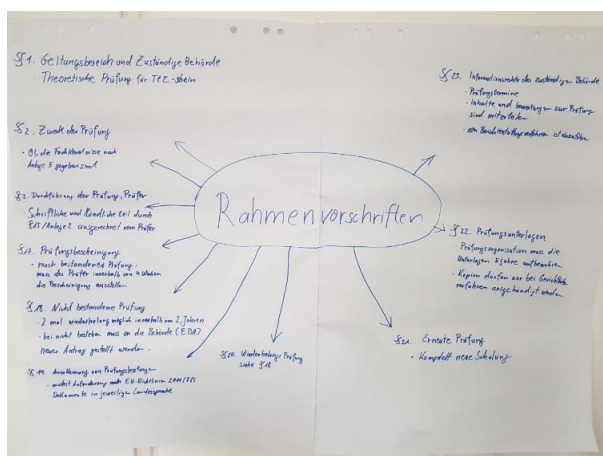 §§1. Geltungsbereich und Zuständige Behörde
- Theoretische Prüfung für TEZ-schein
§2. Zweck der Prüfung
- Ob die Fachkenntnisse nach
Anlage 5 gegeben sind
§3. Durchführung der Prüfung, Prüfer
- Schriftliche und Mündliche teil durch
vom Prüfer
§17. Prüfungsbescheinigung
- nach bestandener Prüfung,
muss der Prüfer innerhalb von 4 Wochen
die Bescheinigung ausstellen
§18. Nicht bestandene Prüfung
- 2 mal wiederholung möglich innerhalb von 2 Jahren
- bei nicht bestehen muss an die Behörde (EBA)
neuer Antrag gestellt werden.
§19. Anerkennung von Prüfungsleistungen
EU-Richtlinie
- Dokumente in jeweiliger Landessprache
Rahmenvorschriften
§20. Wiederholungs Prüfung
siehe §18
§21. Erneute Prüfung
- Komplett neue Schulung
§22. Prüfungsunterlagen
- Prüfungsorganisation muss die
Unterlagen 5 Jahre aufbewahren
- Kopien dürfen nur bei Gerichts
verfahren ausgehändigt werden
§23. Informationsrechte der zuständigen Behörde
- Prüfungstermine
- Inhalte und bewertungen zur Prüfung
sind mitzuteilen
ist einzuführen